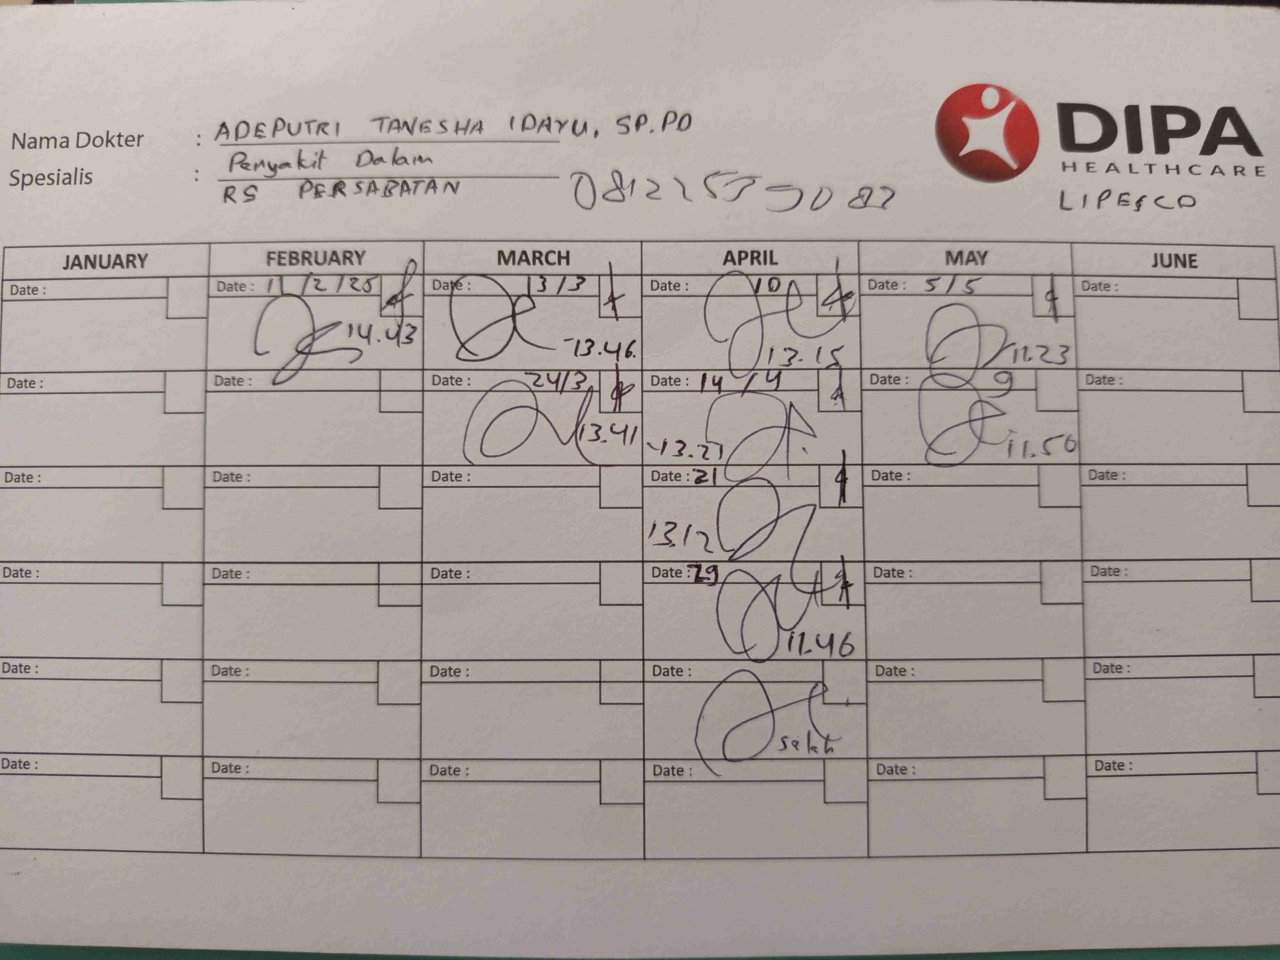 Nama Dokter : ADEPUTRI TANESHA IDAYU, SP.PD
Spesialis : Penyakit Dalam
RS PERSABATAN
DIPA
HEALTHCARE
LIPESCO
JANUARY FEBRUARY MARCH APRIL MAY JUNE
Date : Date : 11/2/25 Date : 13/3 Date : 10 Date : 5/5 Date :
14.43 13.46 13.15 11.23
Date : Date : Date : 24/3 Date : 14/4 Date : 9 Date :
13.41 13.21 11.50
Date : Date : Date : Date : 21 Date : Date :
13.12
Date : Date : Date : Date : 29 Date : Date :
11.46
Date : Date : Date : Date : Date : Date :
Date : Date : Date : Date : Date : Date :